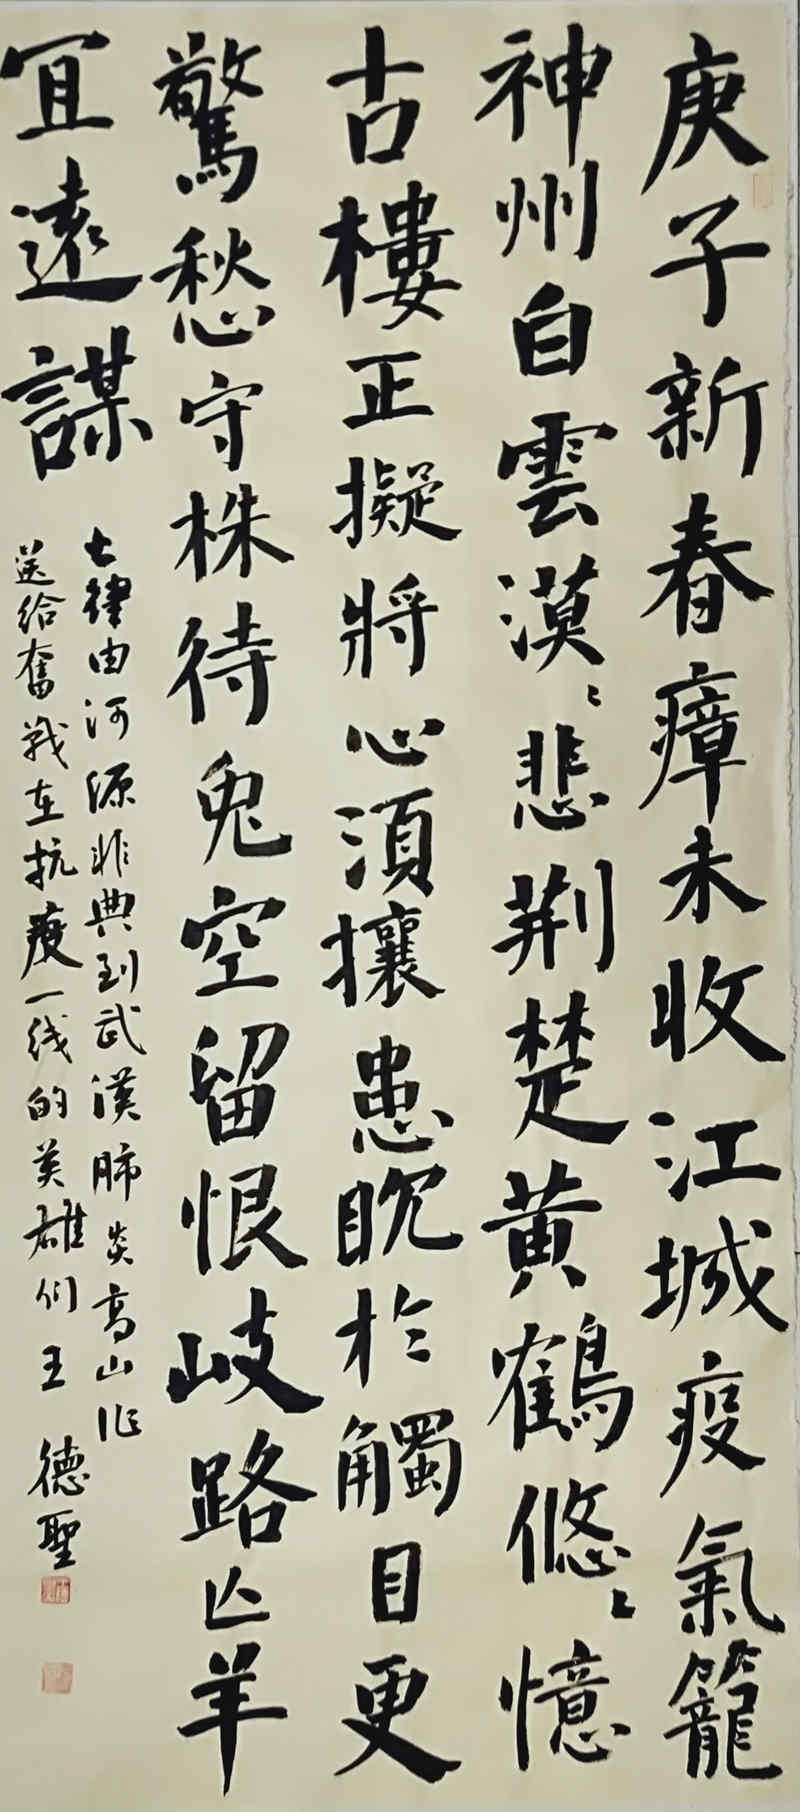 庚子新春瘴未收江城疫氣籠
神州白雲漠〻悲荆楚黄鶴悠〻憶
古樓正擬將心須攘患眈於觸目更
驚愁守株待兔空留恨岐路亡羊
宜遠謀
七律由河源非典到武漢肺炎高山作
送给奮战在抗疫一线的英雄们王德聖